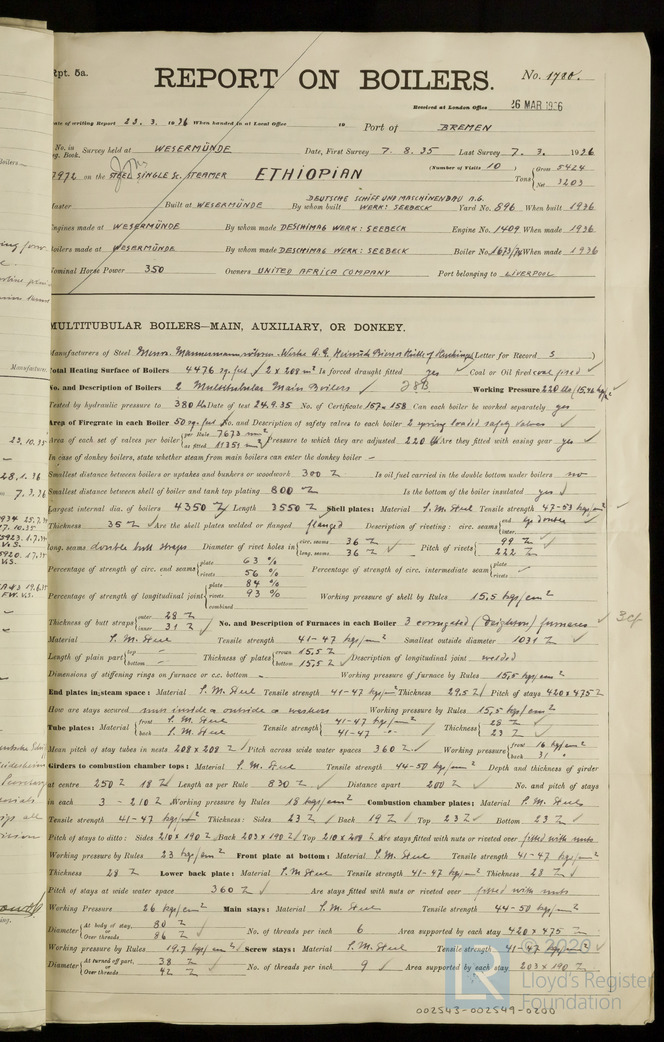 Rpt. 5a.
REPORT ON BOILERS.
No. 1780.
Received at London Office 26 MAR 1936
Date of writing Report 23. 3. 1936 When handed in at Local Office 19 Port of BREMEN
No. in Reg. Book. Survey held at WESERMÜNDE Date, First Survey 7. 8. 35 Last Survey 7. 3. 1936
on the STEEL SINGLE Sc. STEAMER ETHIOPIAN (Number of Visits 10) Tons Gross 5424 Net 3203
Master Built at WESERMÜNDE By whom built DEUTSCHE SCHIFF UND MASCHINENBAU A.G. WERK: SEEBECK Yard No. 896 When built 1936
Engines made at WESERMÜNDE By whom made DESCHIMAG WERK: SEEBECK Engine No. 1409 When made 1936
Boilers made at WESERMÜNDE By whom made DESCHIMAG WERK: SEEBECK Boiler No. 1673/74 When made 1936
Nominal Horse Power 350 Owners UNITED AFRICA COMPANY Port belonging to LIVERPOOL
MULTITUBULAR BOILERS—MAIN, AUXILIARY, OR DONKEY.
Manufacturers of Steel Messrs. (Letter for Record S)
Total Heating Surface of Boilers 4476 sq. feet 2 x 208 m² Is forced draught fitted yes Coal or Oil fired coal fired
No. and Description of Boilers 2 Multitubular Main Boilers Working Pressure 220 lbs
Tested by hydraulic pressure to 380 lbs Date of test 24.9.35 No. of Certificate 157 & 158 Can each boiler be worked separately yes
Area of Firegrate in each Boiler 50 sq. feet No. and Description of safety valves to each boiler 2 spring loaded safety valves
Area of each set of valves per boiler per Rule 7673 mm² as fitted 11351 mm² Pressure to which they are adjusted 220 lbs Are they fitted with easing gear yes
In case of donkey boilers, state whether steam from main boilers can enter the donkey boiler –
Smallest distance between boilers or uptakes and bunkers or woodwork 300 Is oil fuel carried in the double bottom under boilers no
Smallest distance between shell of boiler and tank top plating 800 Is the bottom of the boiler insulated yes
Largest internal dia. of boilers 4350 Length 3550 Shell plates: Material S. M. Steel Tensile strength 47-53 kgs/mm²
Thickness 35 Are the shell plates welded or flanged flanged Description of riveting: circ. seams end lap double inter.
long. seams double butt straps Diameter of rivet holes in circ. seams 36 long. seams 36 Pitch of rivets 99 222
Percentage of strength of circ. end seams plate 63 % rivets 56 % Percentage of strength of circ. intermediate seam plate rivets
Percentage of strength of longitudinal joint plate 84 % rivets 93 % combined Working pressure of shell by Rules 15,5 kgs/cm²
Thickness of butt straps outer 28 inner 31 No. and Description of Furnaces in each Boiler 3 corrugated (Deighton) furnaces
Material S. M. Steel Tensile strength 41-47 kgs/mm² Smallest outside diameter 1031
Length of plain part top bottom Thickness of plates crown 15,5 bottom 15,5 Description of longitudinal joint welded
Dimensions of stiffening rings on furnace or c.c. bottom – Working pressure of furnace by Rules 15,5 kgs/cm²
End plates in steam space: Material S. M. Steel Tensile strength 41-47 kgs/mm² Thickness 29.5 Pitch of stays 420 x 475
How are stays secured nuts inside & outside & washers Working pressure by Rules 15,5 kgs/cm²
Tube plates: Material front S. M. Steel back S. M. Steel Tensile strength 41-47 kgs/mm² 41-47 Thickness 28 23
Mean pitch of stay tubes in nests 208 x 208 Pitch across wide water spaces 360 Working pressure front 16 kgs/cm² back 31
Girders to combustion chamber tops: Material S. M. Steel Tensile strength 44-50 kgs/mm² Depth and thickness of girder
at centre 250 18 Length as per Rule 830 Distance apart 200 No. and pitch of stays
in each 3 - 210 Working pressure by Rules 18 kgs/cm² Combustion chamber plates: Material S. M. Steel
Tensile strength 41-47 kgs/mm² Thickness: Sides 23 Back 19 Top 23 Bottom 23
Pitch of stays to ditto: Sides 210 x 190 Back 203 x 190 Top 210 x 208 Are stays fitted with nuts or riveted over fitted with nuts
Working pressure by Rules 23 kgs/cm² Front plate at bottom: Material S. M. Steel Tensile strength 41-47 kgs/mm²
Thickness 28 Lower back plate: Material S. M Steel Tensile strength 41-47 kgs/mm² Thickness 28
Pitch of stays at wide water space 360 Are stays fitted with nuts or riveted over fitted with nuts
Working Pressure 26 kgs/cm² Main stays: Material S. M. Steel Tensile strength 44-50 kgs/mm²
Diameter At body of stay, 80 or Over threads 86 No. of threads per inch 6 Area supported by each stay 420 x 475
Working pressure by Rules 19.7 kgs/cm² Screw stays: Material S. M. Steel Tensile strength 41-47 kgs/mm²
Diameter At turned off part, 38 or Over threads 42 No. of threads per inch 9 Area supported by each stay 203 x 190
© 2020
Lloyd's Register
Foundation
002543-002549-0200